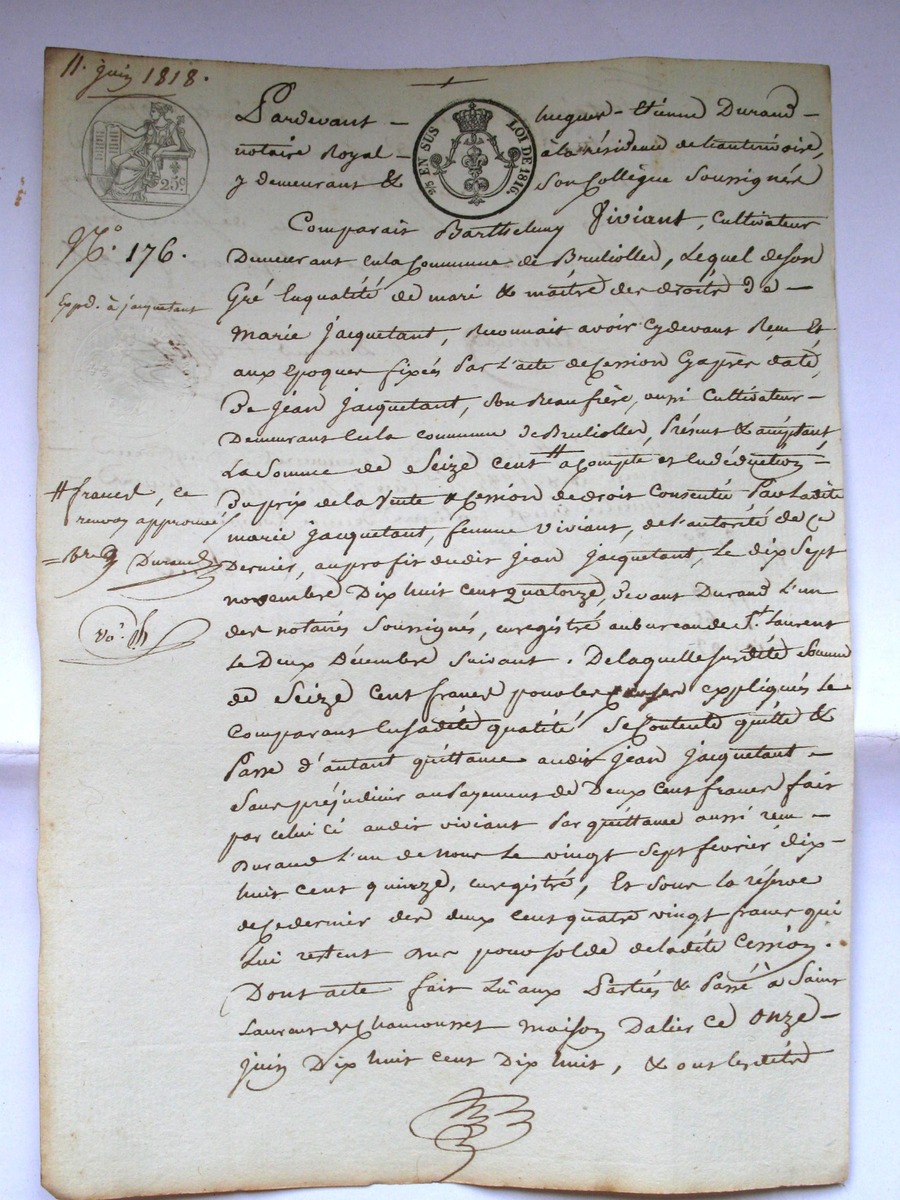 11. juin 1818.
25c
25 EN SUS LOI DE 1816.
Pardevant - hugues - Etienne Durand -
notaire Royal - à la résidence de hauterivoire,
y demeurant & Son Collègue Soussignés
N.° 176.
Comparait Barthelemy Viviant, Cultivateur
Demeurant en la Commune de Bruliolles, Lequel de son
Expd. à jacquetant
Gré En qualité de mari & maitre des droits de -
Marie Jacquetant, Reconnait avoir Cydevant Recu Et
aux Epoques fixées Par L'acte de Cession Cyaprès daté,
De Jean Jacquetant, Son Beaufrère, aussi Cultivateur -
Demeurant En la commune de Brulioller, Présent & acceptant,
La Somme de Seize Cent # a Compte et En déduction -
# francs, ce
renvoi approuvé
= Durand
Vo.
Du prix de la Vente & Cession de droit Consentie Par Ladite
marie jacquetant, femme Viviant, de L'autorité de Ce
Dernier, au profit dudit jean jacquetant, Le dix Sept
novembre Dix huit Cent quatorze, devant Durand L'un
des notaires Soussignés, enregistré au bureau de St. Laurent
Le Deux Décembre Suivant. De laquelle susdite Somme
de Seize Cent francs pour les causes expliquées Le
Comparant En sadite qualité Se Contente quitte &
Passe d'autant quittance audit jean jacquetant -
Sans préjudicier au Payement de Deux Cent francs fait
par celui ci audit viviant Par quittance aussi recu -
Durand L'un de nous Le vingt Sept fevrier dix-
huit cent quinze, enregistré, Et Sous La réserve
de ce dernier des deux Cent quatre vingt francs qui
Lui restent dus pour Solde de ladite Cession.
Dont acte fait Lu aux Parties & Passé à Saint
Laurent de Chamousset maison Dalier Ce Onze -
juin Dix huit Cent Dix huit, & ont lesdites